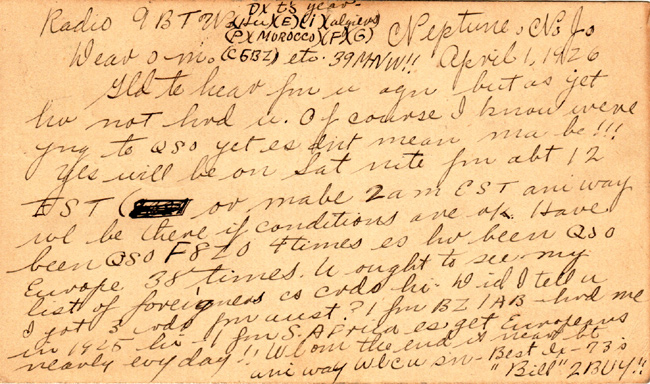 Radio 9BTW DX ts year Neptune, N. J.
(Su)(E)(i)(algiers
(P)(MOROCCO)(F)(G)
Dear o m. (CGBZ) etc. 39 MNW!! April 1, 1926
Gld to hear fm u agn but as yet
hv not hrd u. Of course I know were
gng to QSO yet es dnt mean ma be!!!
Yes will be on Sat nite fm abt 12
EST ( or mabe 2am EST ani way
wl be there if conditions are ok. Have
been QSO F8ZO 4 times es hv been QSO
Europe 38 times. U ought to see my
list of foreigners es crds hi. Did I tell u
I got 3 crds fm aust? 1 fm BZ 1AB - hrd me
in 1925 hi - 1 fm S. Africa es get Europeans
nearly evy day!! Wl om the end is near bt
ani way wl cu sn - Best Dx - 73's
"Bill" 2BUY!!